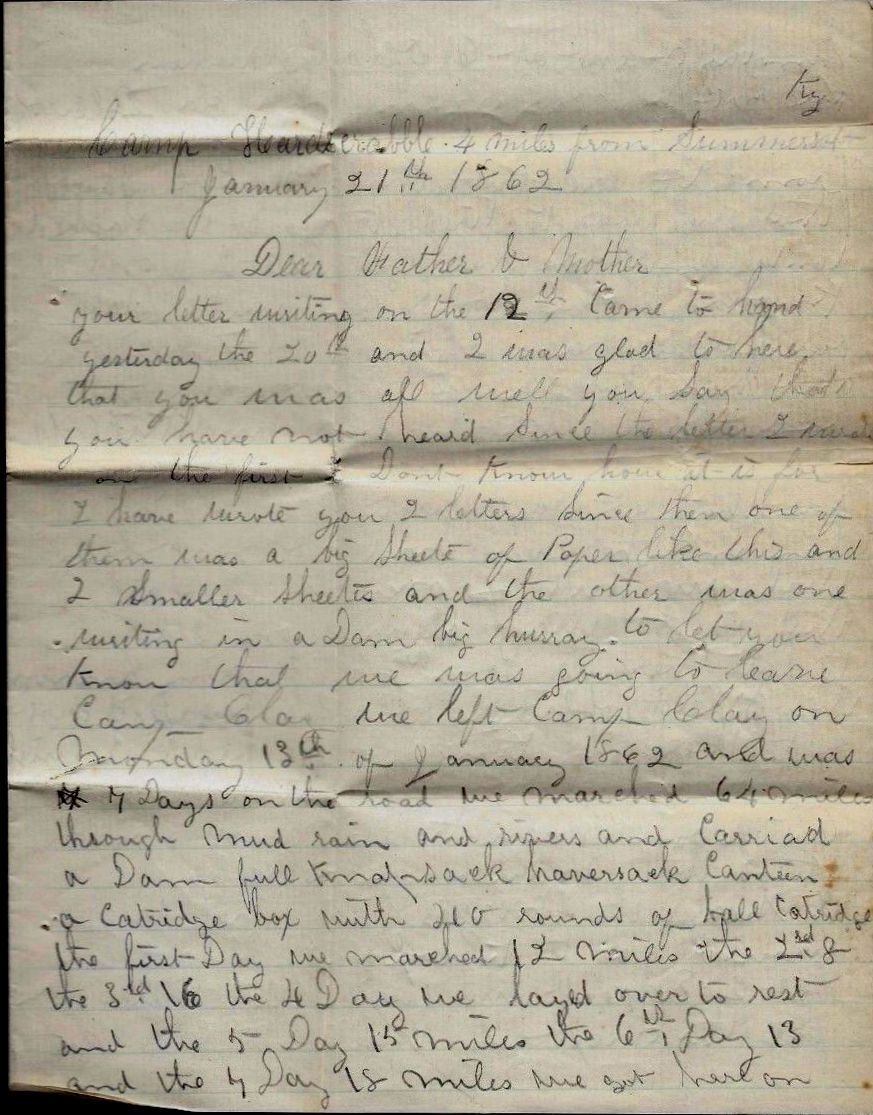 Ky
Camp Hardscrabble 4 miles from Summerset
January 21th 1862
Dear Father & Mother
your letter writing on the 12th Came to hand
yesterday the 20th and I was glad to here
that you was all well you Say that
you have not heard Since the letter I wrote
on the first I Dont Know how it is for
I have wrote you 2 letters Since then one of
them was a big Sheete of Paper like this and
2 Smaller Sheetes and the other was one
writing in a Dam big hurray to let you
Know that we was going to leave
Camp Clay we left Camp Clay on
Monday 13th of January 1862 and was
7 Days on the road we marched 64 miles
through mud rain and rivers and Carriad
a Dam full Knapsack haversack Canteen
a Catridge box with 40 rounds of ball Catridge
the first Day we marched 12 miles the 2rd 8
the 3rd 16 the 4 Day we layed over to rest
and the 5 Day 15 miles the 6th Day 13
and the 7 Day 18 miles we got here on